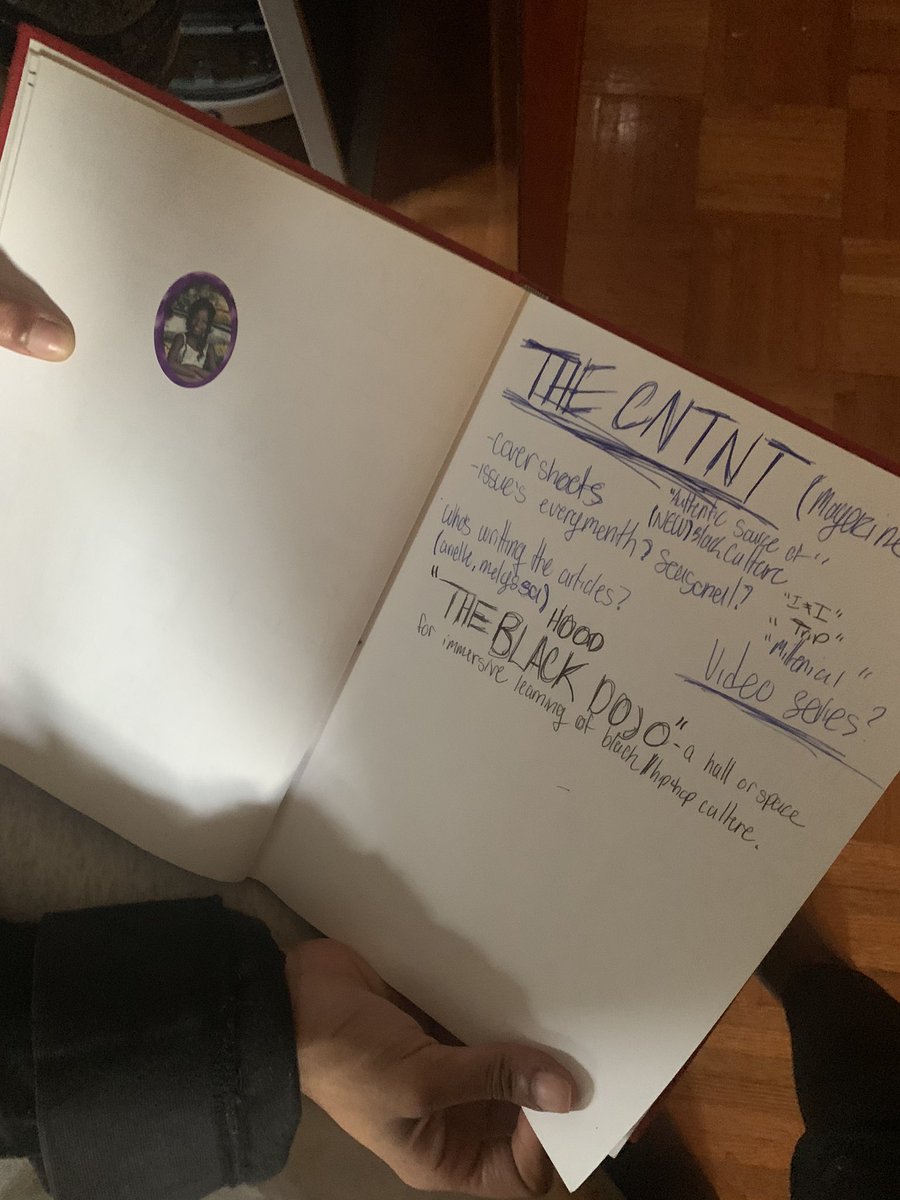 THE CNTNT (Magazine
-cover sheets
"Authentic source of"
(NEW) Black Culture
-issue's everymonth? seasonell?
whos writting the articles?
(arielle, melyssa)
"I&I"
"Trip"
"millenial"
Video series?
HOOD
"THE BLACK DOJO" - a hall or space
for immersive learning of black/hip hop culture.